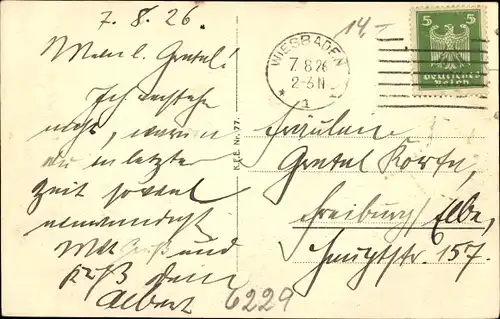 7. 8. 26.
Mein l. Gretel!
Ich verstehe
nicht, warum
du in letzter
Zeit soviel
Mit Gruß und
Dein
Albert
K.E.E. Nr. 77.
14.-
WIESBADEN
7.8.26
2-3 N
* 1
5 5
Deutsches
Reich
Fräulein
Gretel Korte,
Freiburg/Elbe,
Hauptstr. 157.
6229